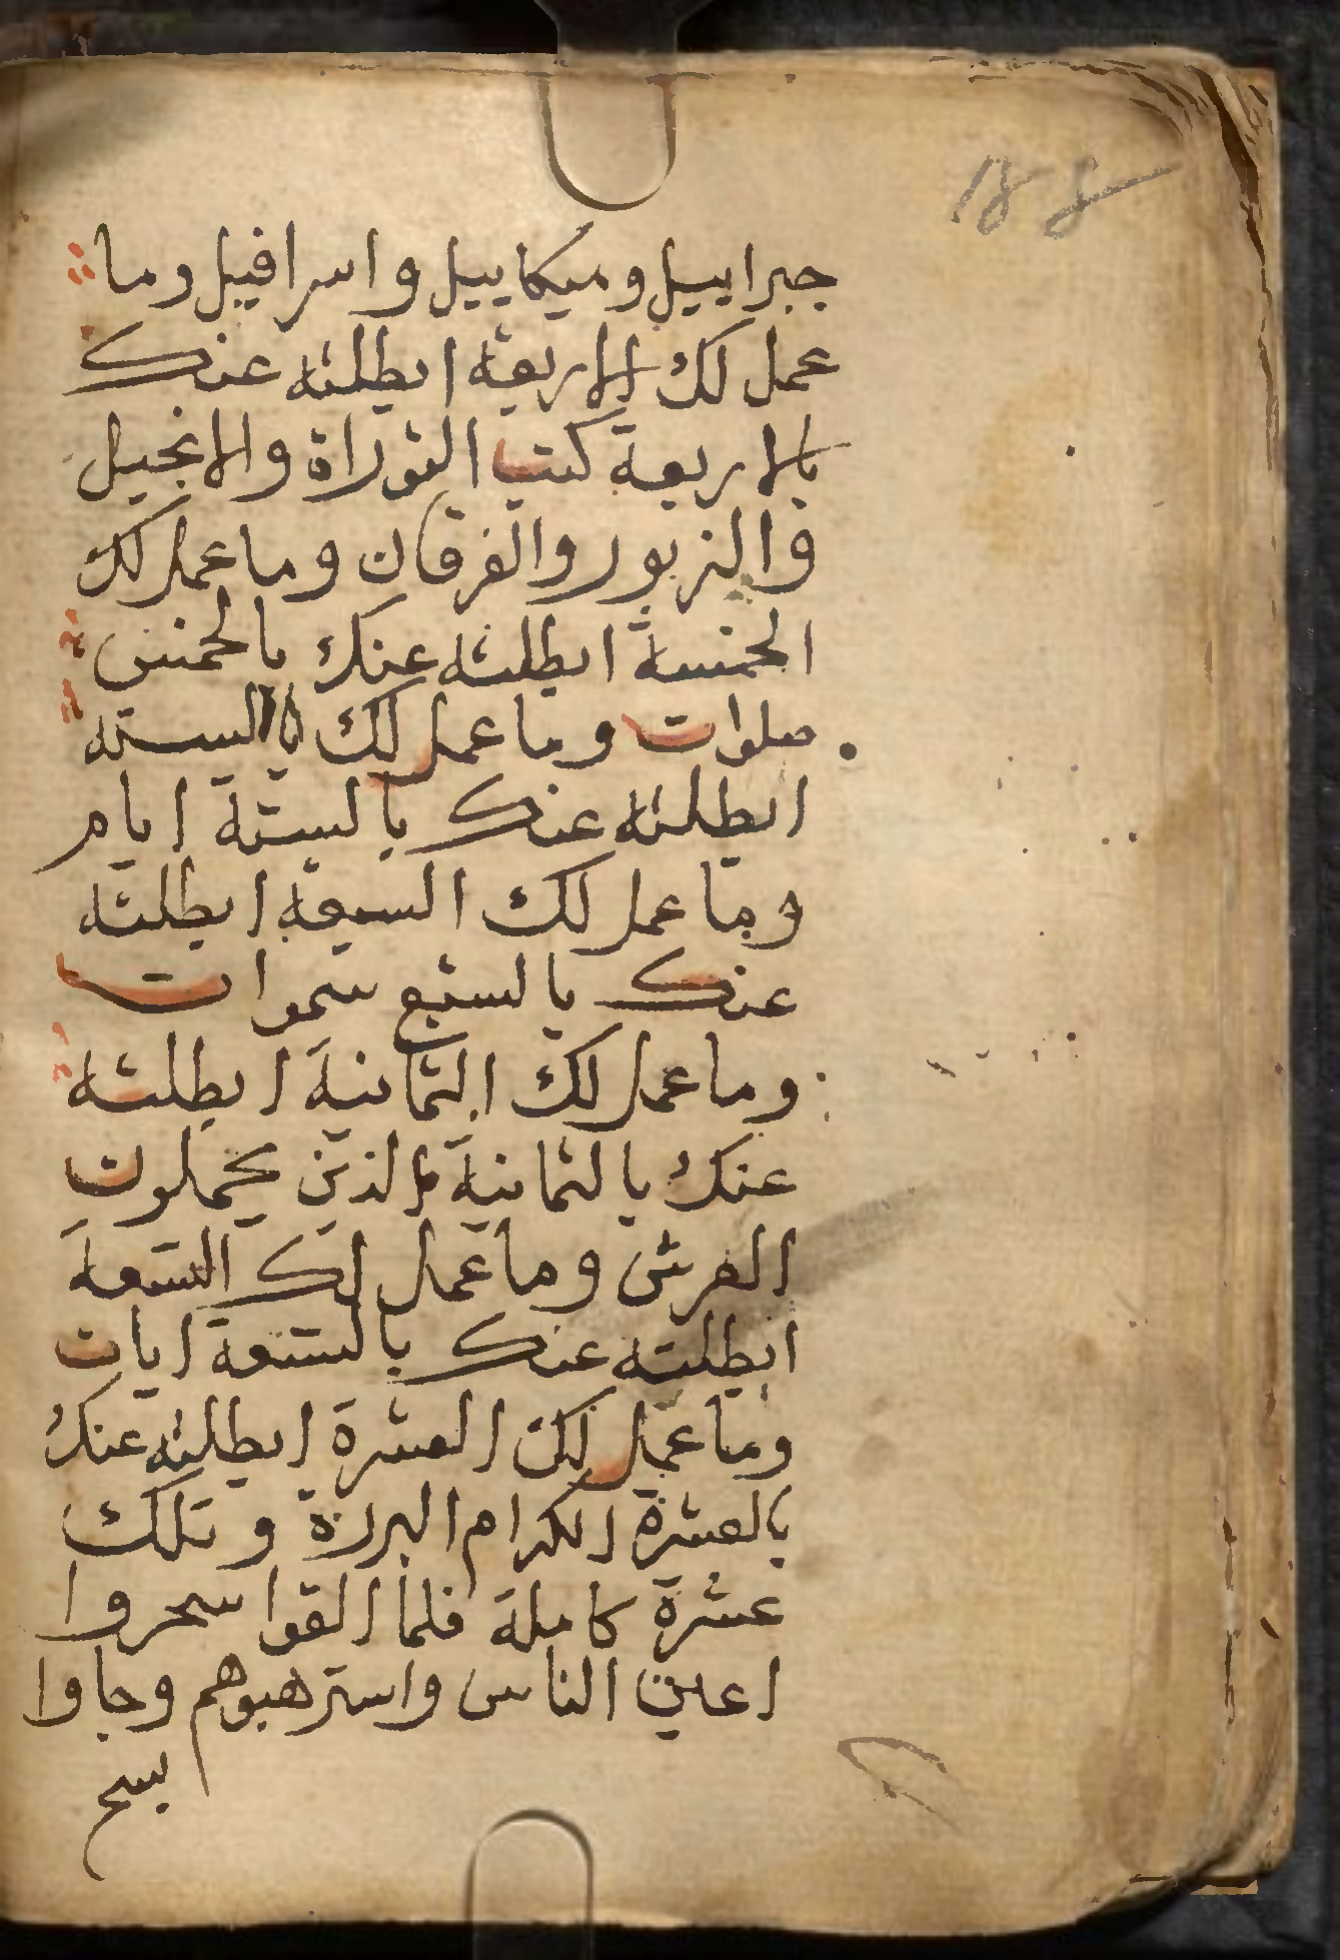 جبراييل وميكاييل واسرافيل وما
عمل لك الاربعة ابطلته عنك
بالاربعة كتب التوراة والانجيل
والزبور والفرقان وما عمل لك
الخمسة ابطلته عنك بالخمس
صلوات وما عمل لك السته
ابطلته عنك بالستة ايام
وما عمل لك السبعة ابطلته
عنك بالسبع سموات
وما عمل لك الثمانية ابطلته
عنك بالثمانية الذين يحملون
العرش وما عمل لك التسعة
ابطلته عنك بالتسعة ايات
وما عمل لك العشرة ابطلته عنك
بالعشرة الكرام البررة وتلك
عشرة كاملة فلما القوا سحروا
اعين الناس واسترهبوهم وجاوا
بسح